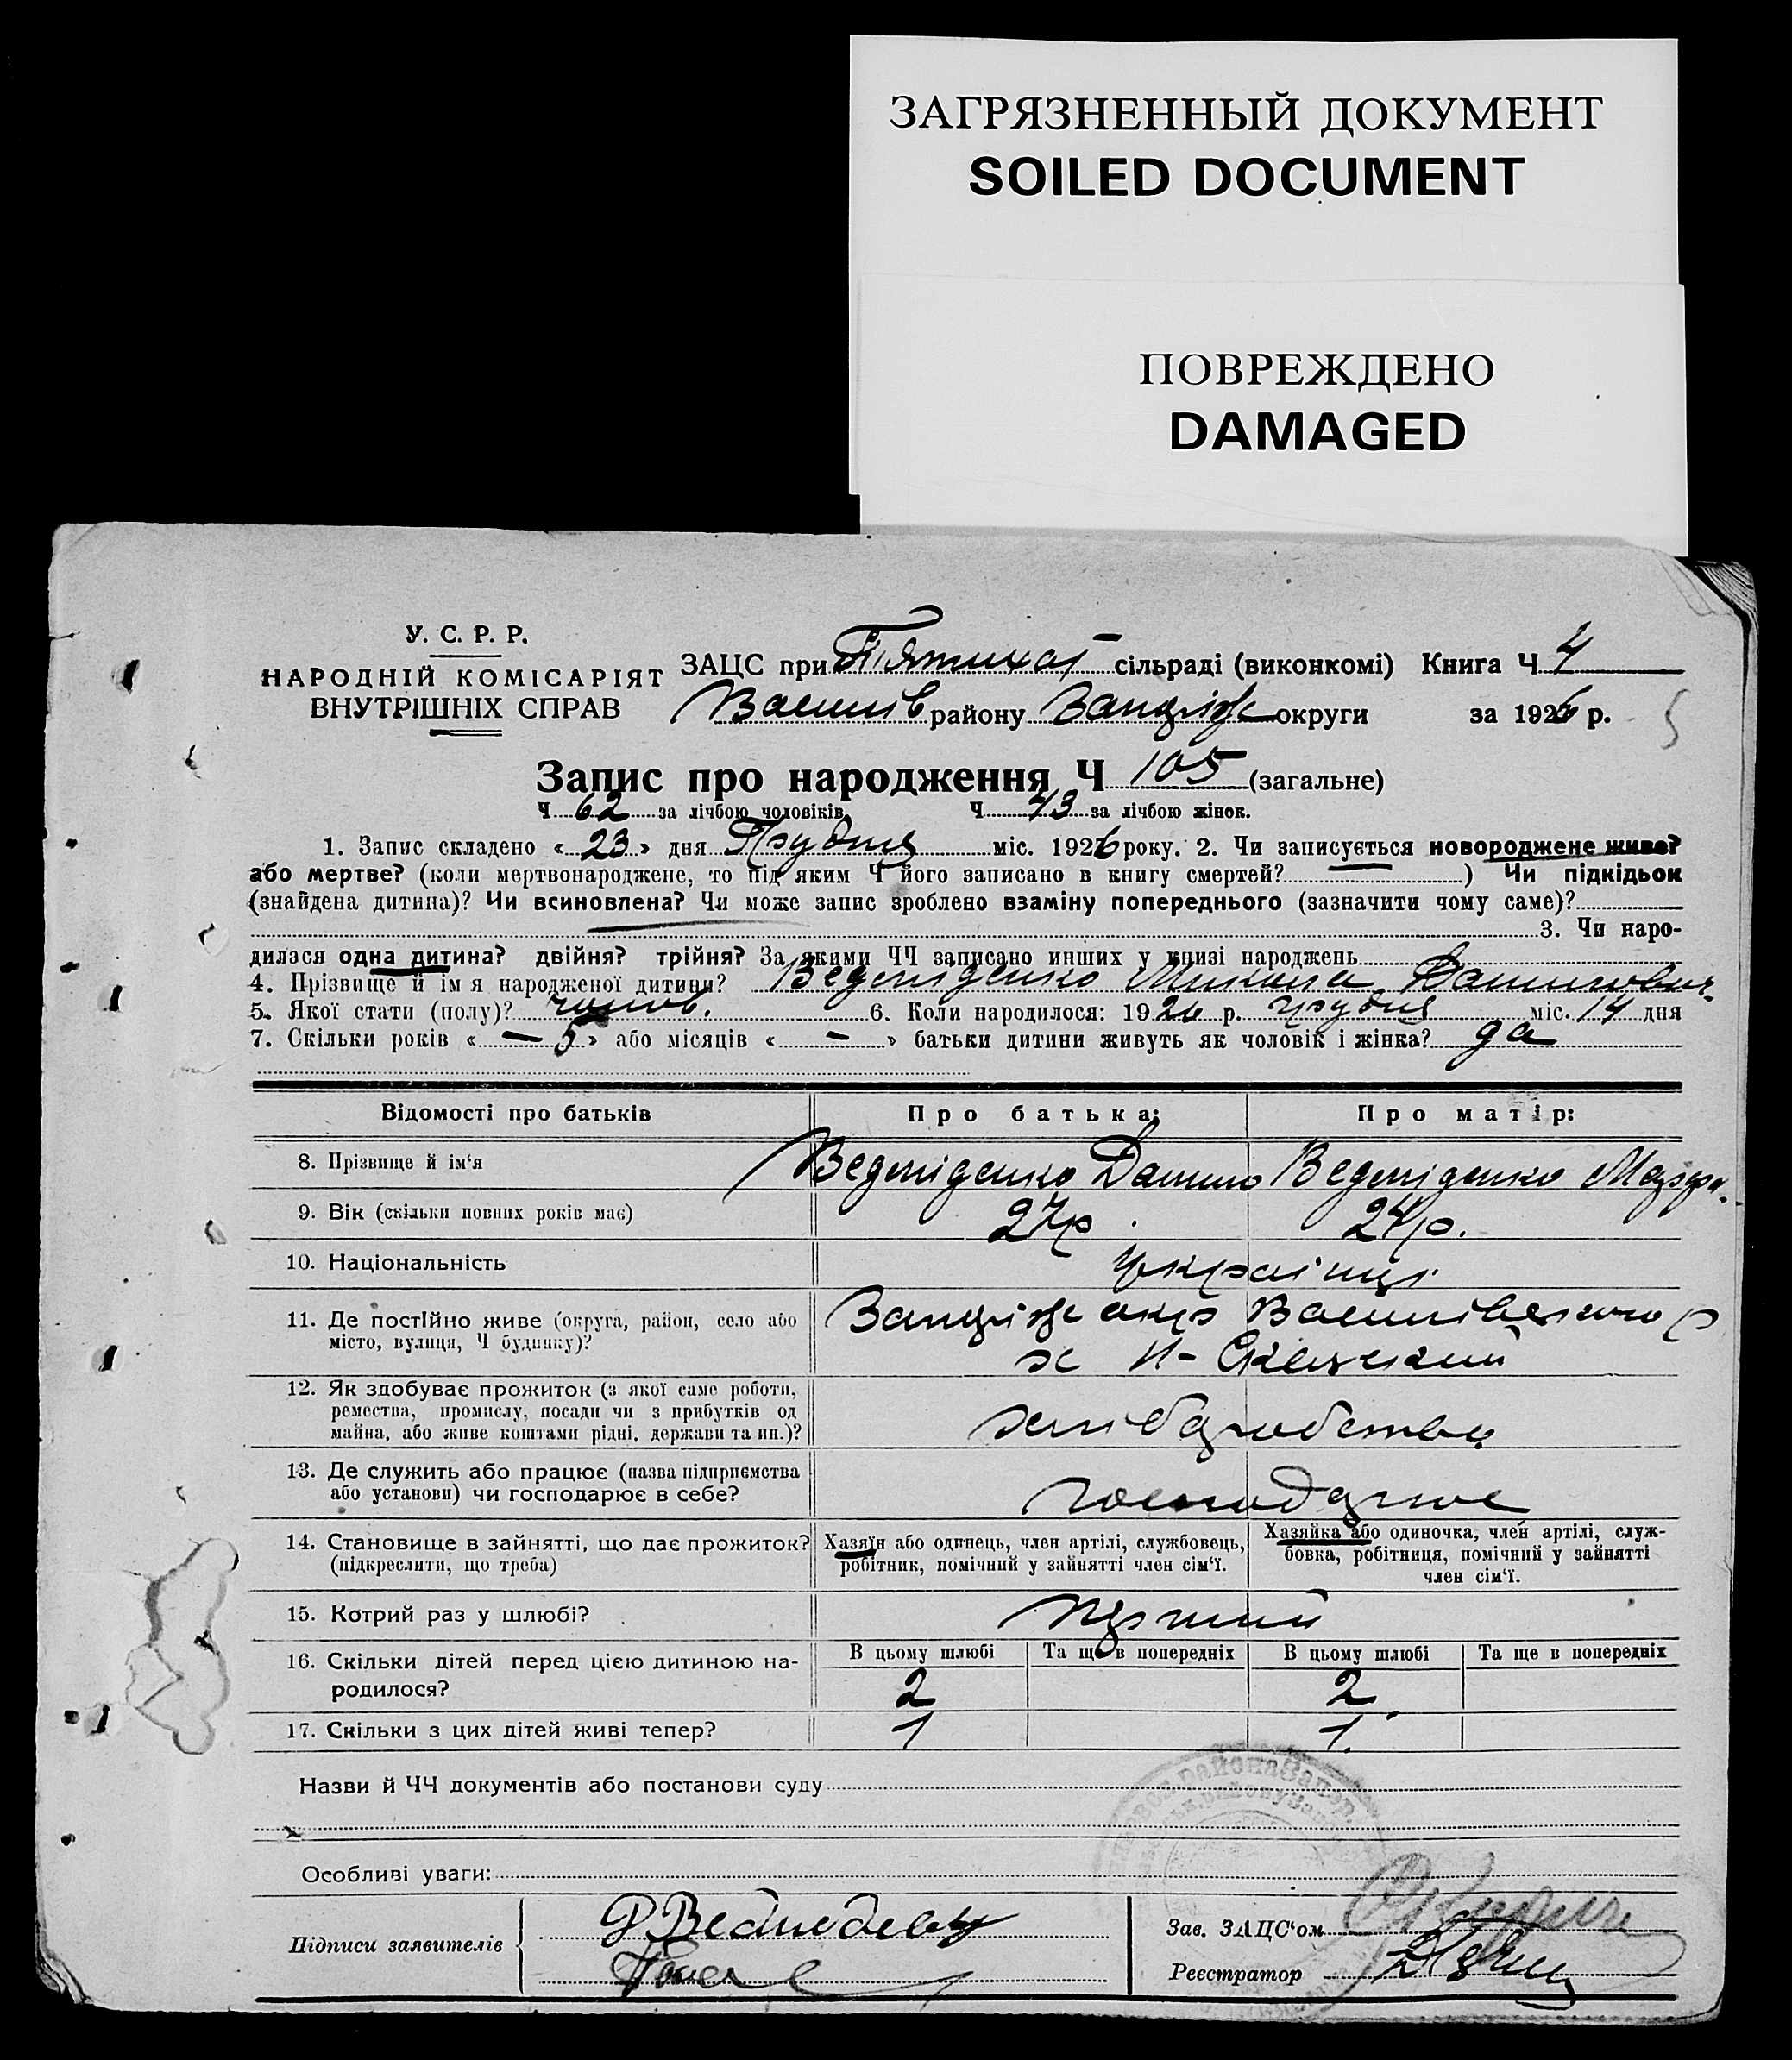 ЗАГРЯЗНЕННЫЙ ДОКУМЕНТ
SOILED DOCUMENT
ПОВРЕЖДЕНО
DAMAGED
У. С. Р. Р.
НАРОДНІЙ КОМІСАРІЯТ
ВНУТРІШНІХ СПРАВ
ЗАЦС при П'ятихат сільраді (виконкомі) Книга Ч 4
Василів району Запоріж округи за 1926 р.
Запис про народження Ч 105 (загальне)
Ч 62 за лічбою чоловіків, Ч 43 за лічбою жінок.
1. Запис складено « 23 » дня Грудня міс. 1926 року. 2. Чи записується новороджене живе?
або мертве? (коли мертвонароджене, то під яким Ч його записано в книгу смертей? — ) Чи підкідьок
(знайдена дитина)? Чи всиновлена? Чи може запис зроблено взаміну попереднього (зазначити чому саме)?
3. Чи наро-
дилася одна дитина? двійня? трійня? За якими ЧЧ записано инших у книзі народжень
4. Прізвище й ім я народженої дитини? Ведміденко Микола Данилович
5. Якої стати (полу)? чолов. 6. Коли народилося: 1926 р. грудня міс. 14 дня
7. Скільки років « — 5 » або місяців « — » батьки дитини живуть як чоловік і жінка? да
Відомості про батьків Про батька: Про матір:
8. Прізвище й ім'я Ведміденко Данило Ведміденко
9. Вік (скільки повних років має) 27р. 24р.
10. Національність українці
11. Де постійно живе (округа, район, село або Запоріж окр Василівського р
місто, вулиця, Ч будинку)? х
12. Як здобуває прожиток (з якої саме роботи,
ремества, промислу, посади чи з прибутків од хліборобство
майна, або живе коштами рідні, держави та ин.)?
13. Де служить або працює (назва підприємства
або установи) чи господарює в себе? господарює
14. Становище в зайнятті, що дає прожиток? Хазяїн або одинець, член артілі, службовець, Хазяйка або одиночка, член артілі, служ-
(підкреслити, що треба) робітник, помічний у зайнятті член сім'ї. бовка, робітниця, помічний у зайнятті
член сім'ї.
15. Котрий раз у шлюбі? перший
16. Скільки дітей перед цією дитиною на- В цьому шлюбі Та ще в попередніх В цьому шлюбі Та ще в попередніх
родилося? 2 2
17. Скільки з цих дітей живі тепер? 1 1
Назви й ЧЧ документів або постанови суду
Особливі уваги:
Підписи заявителів
Зав. ЗАЦС'ом
Реєстратор